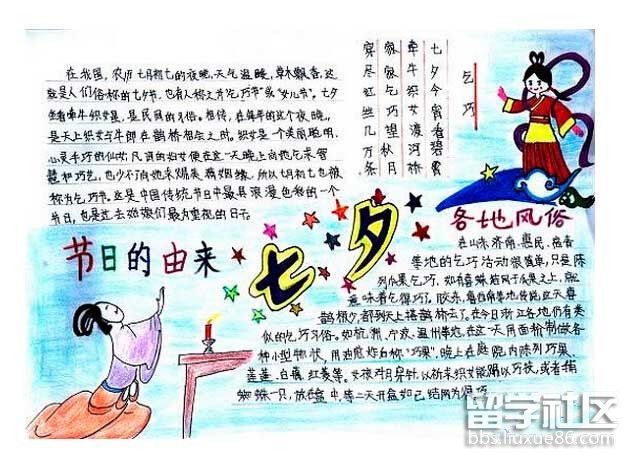 在我国，农历七月初七的夜晚，天气温暖，草木飘香，这
就是人们俗称的七夕节，也有人称之为"乞巧节"或"女儿节"。七夕
坐看牵牛织女星，是民间的习俗。相传，在每年的这个夜晚，
是天上织女与牛郎在鹊桥相会之时。织女是一个美丽聪明、
心灵手巧的仙女，凡间的妇女便在这一天晚上向她乞求智
慧和巧艺，也少不了向她求赐美满姻缘，所以七月初七也被
称为乞巧节。这是中国传统节日中最具浪漫色彩的一个
节日，也是过去姑娘们最为重视的日子。
乞巧
七夕今宵看碧霄
牵牛织女渡河桥
家家乞巧望秋月
穿尽红丝几万条
节日的由来
七夕
各地风俗
在山东济南、惠民、高青
等地的乞巧活动很简单，只是陈
列瓜果乞巧，如有喜蛛结网于瓜果之上，就
意味着乞得巧了。胶东、鲁西南等地传说，此天喜
鹊极少，都到天上搭鹊桥去了。在今日浙江各地仍有类
似的乞巧习俗。如杭州、宁波、温州等地，在这一天用面粉制做各
种小型物状，用油煎炸后称"巧果"，晚上在庭院内陈列巧果、
莲蓬、白藕、红菱等。女孩对月穿针，以祈求织女能赐以巧技，或者捕
蜘蛛一只，放在盒中，第二天开盒如已结网为得巧
留学社区
bbs.liuxue86.com